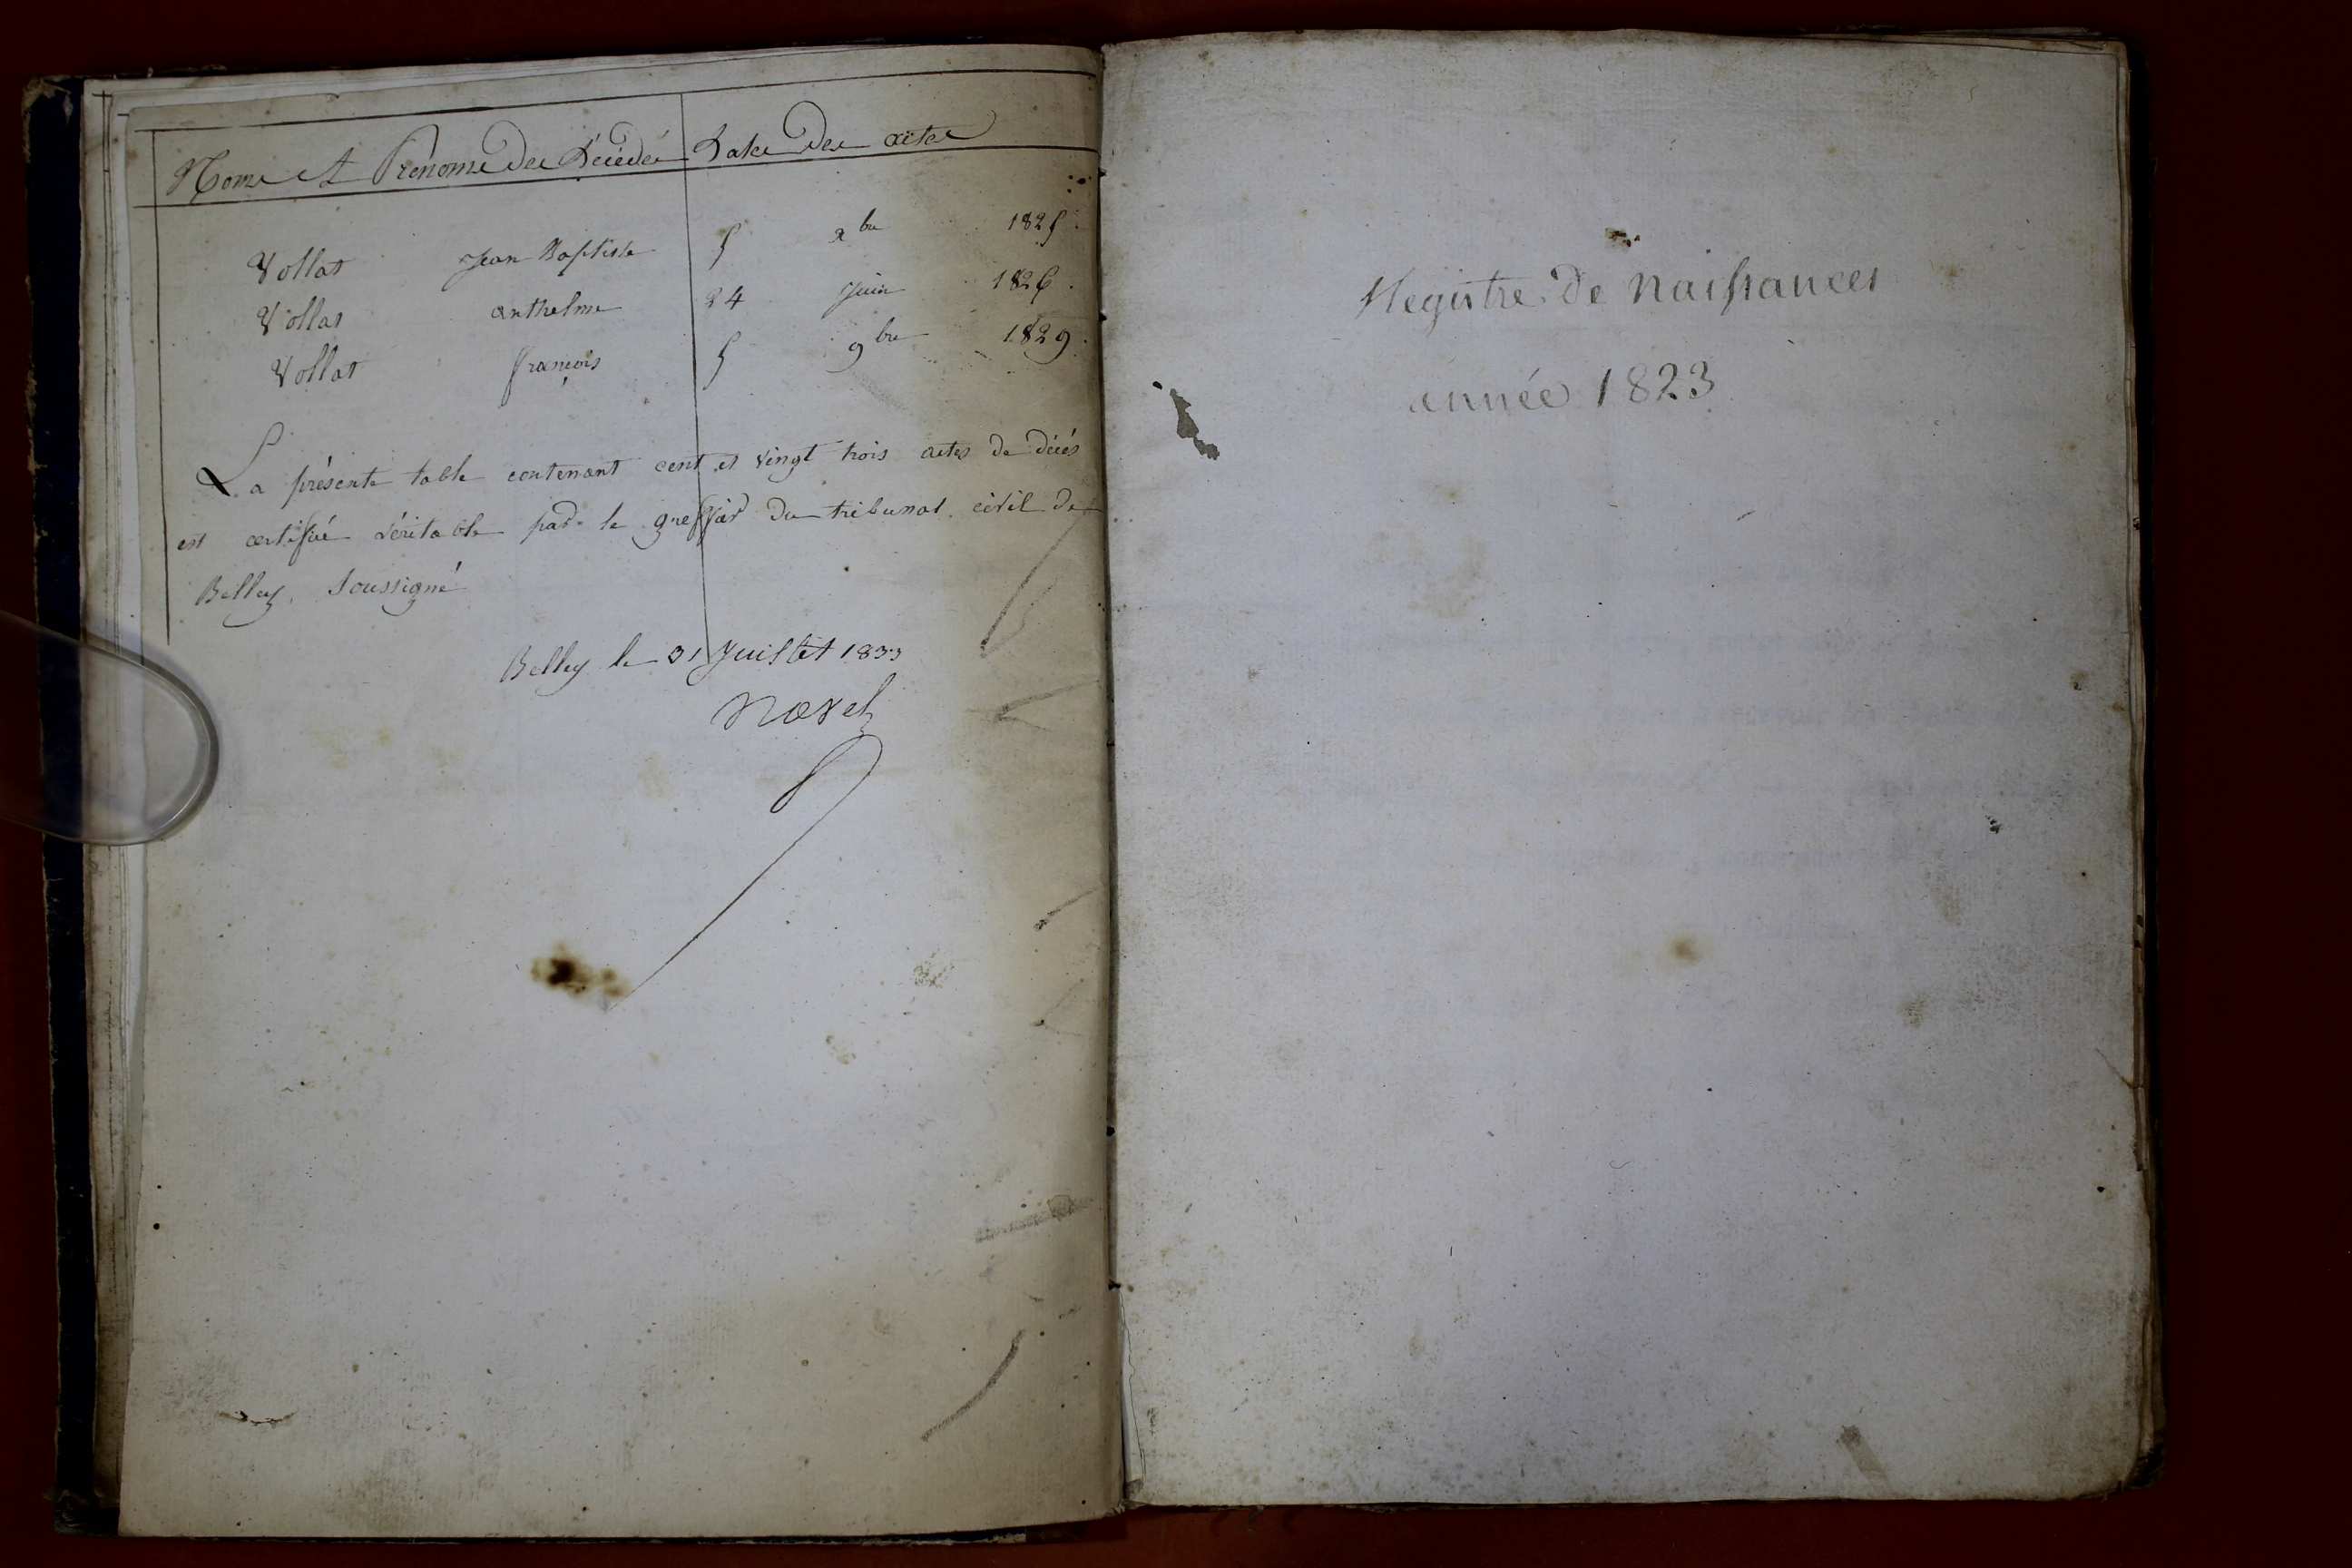 Noms et Prénoms des Décédés Dates des actes
Vollat Jean Baptiste 5 xbre 1825.
Vollat anthelme 24 Juin 1826.
Vollat françois 5 9bre 1829.
La présente table contenant cent et vingt trois actes de décés
est certifié véritable par le greffier du tribunal civil de
Belley, Soussigné
Belley le 31 Juillet 1833
Registre de naissances
année 1823